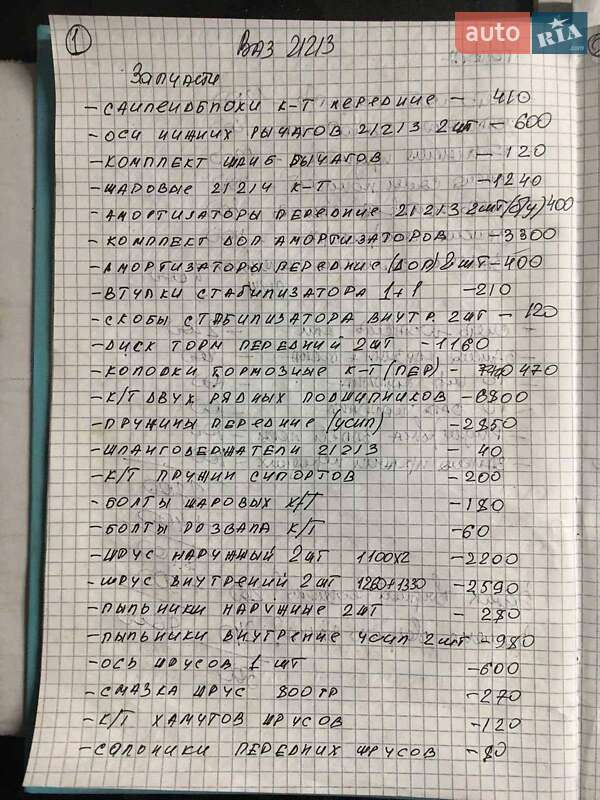 auto RIA.com
1 ВАЗ 21213
Запчасти
- САЙЛЕНБЛОКИ К-Т ПЕРЕДНИЕ - 410
- ОСИ НИЖНИХ РЫЧАГОВ 21213 2 ШТ - 600
- КОМПЛЕКТ ШАЙБ РЫЧАГОВ - 120
- ШАРОВЫЕ 21214 К-Т - 1240
- АМОРТИЗАТОРЫ ПЕРЕДНИЕ 21213 2 ШТ (б/у) 400
- КОМПЛЕКТ ДОП АМОРТИЗАТОРОВ - 3300
- АМОРТИЗАТОРЫ ПЕРЕДНИЕ (ДОП) 2 ШТ - 400
- ВТУЛКИ СТАБИЛИЗАТОРА 1+1 - 210
- СКОБЫ СТАБИЛИЗАТОРА ВНУТР. 2 ШТ - 120
- ДИСК ТОРМ ПЕРЕДНИЙ 2 ШТ - 1160
- КОЛОДКИ ТОРМОЗНЫЕ К-Т (ПЕР) - 470
- К/Т ДВУХ РЯДНЫХ ПОДШИПНИКОВ - 6800
- ПРУЖИНЫ ПЕРЕДНИЕ (УСИЛ) - 2850
- ШЛАНГОДЕРЖАТЕЛИ 21213 - 40
- К/Т ПРУЖИН СУПОРТОВ - 200
- БОЛТЫ ШАРОВЫХ К/Т - 180
- БОЛТЫ РОЗВАЛА К/Т - 60
- ШРУС НАРУЖНЫЙ 2 ШТ 1100х2 - 2200
- ШРУС ВНУТРЕНИЙ 2 ШТ 1260+1330 - 2590
- ПЫЛЬНИКИ НАРУЖНИЕ 2 ШТ - 280
- ПЫЛЬНИКИ ВНУТРЕНИЕ УСИЛ 2 ШТ - 980
- ОСЬ ШРУСОВ 1 ШТ - 600
- СМАЗКА ШРУС 800 ГР - 270
- К/Т ХАМУТОВ ШРУСОВ - 120
- САЛЬНИКИ ПЕРЕДНИХ ШРУСОВ - 80